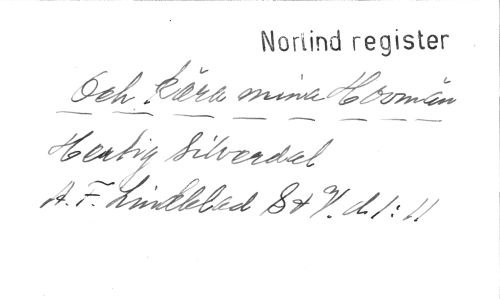 Norlind register
Och kära mina Hovmän
Hertig Silverdal
A. F. Lindblad S & V. d. 1: 11